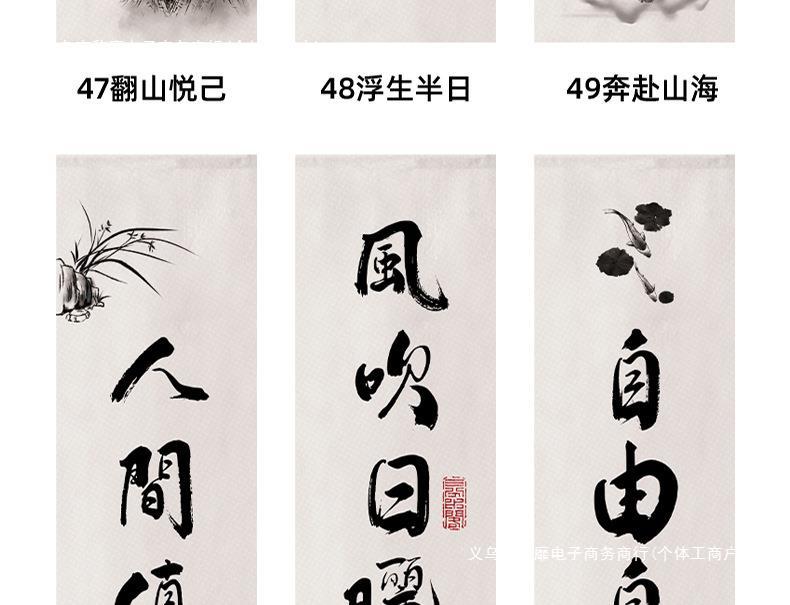 47翻山悦己
48浮生半日
49奔赴山海
人間值
風吹日曬
自由自
电子商务商行(个体工商户